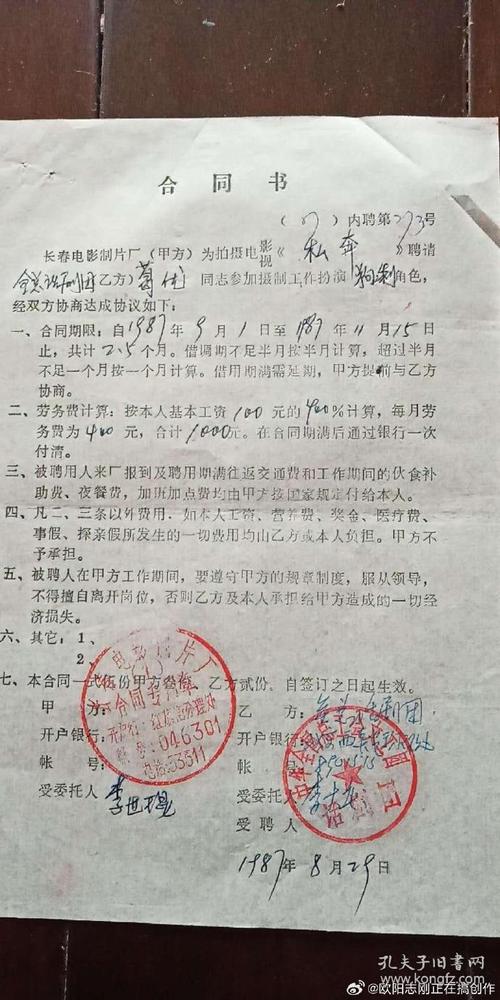 合同书
(87)内聘第273号
长春电影制片厂(甲方)为拍摄电影视《私奔》聘请
全总话剧团(乙方)葛优同志参加摄制工作扮演狗剩角色,
经双方协商达成协议如下:
一、合同期限:自1987年9月1日至1987年11月15日
止,共计2.5个月。借调期不足半月按半月计算,超过半月
不足一个月按一个月计算。借用期满需延期,甲方提前与乙方
协商。
二、劳务费计算:按本人基本工资100元的400%计算,每月劳
务费为400元,合计1000元。在合同期满后通过银行一次
付清。
三、被聘用人来厂报到及聘用期满往返交通费和工作期间的伙食补
助费、夜餐费,加班加点费均由甲方按国家规定付给本人。
四、凡二、三条以外费用,如本人工资、营养费、奖金、医疗费、
事假、探亲假所发生的一切费用均由乙方或本人负担。甲方不
予承担。
五、被聘人在甲方工作期间,要遵守甲方的规章制度,服从领导,
不得擅自离开岗位,否则乙方及本人承担给甲方造成的一切经
济损失。
六、其它:1、
2、
七、本合同一式伍份甲方叁份,乙方贰份,自签订之日起生效。
甲方:
乙方:全总话剧团
开户银行:
开户银行:
帐号:
帐号:
受委托人 李世琨
受委托人
受聘人
电影制片厂
合同专用章
046301
电话:53511
话剧团
1987年8月29日
孔夫子旧书网
@欧阳志刚正在搞创作